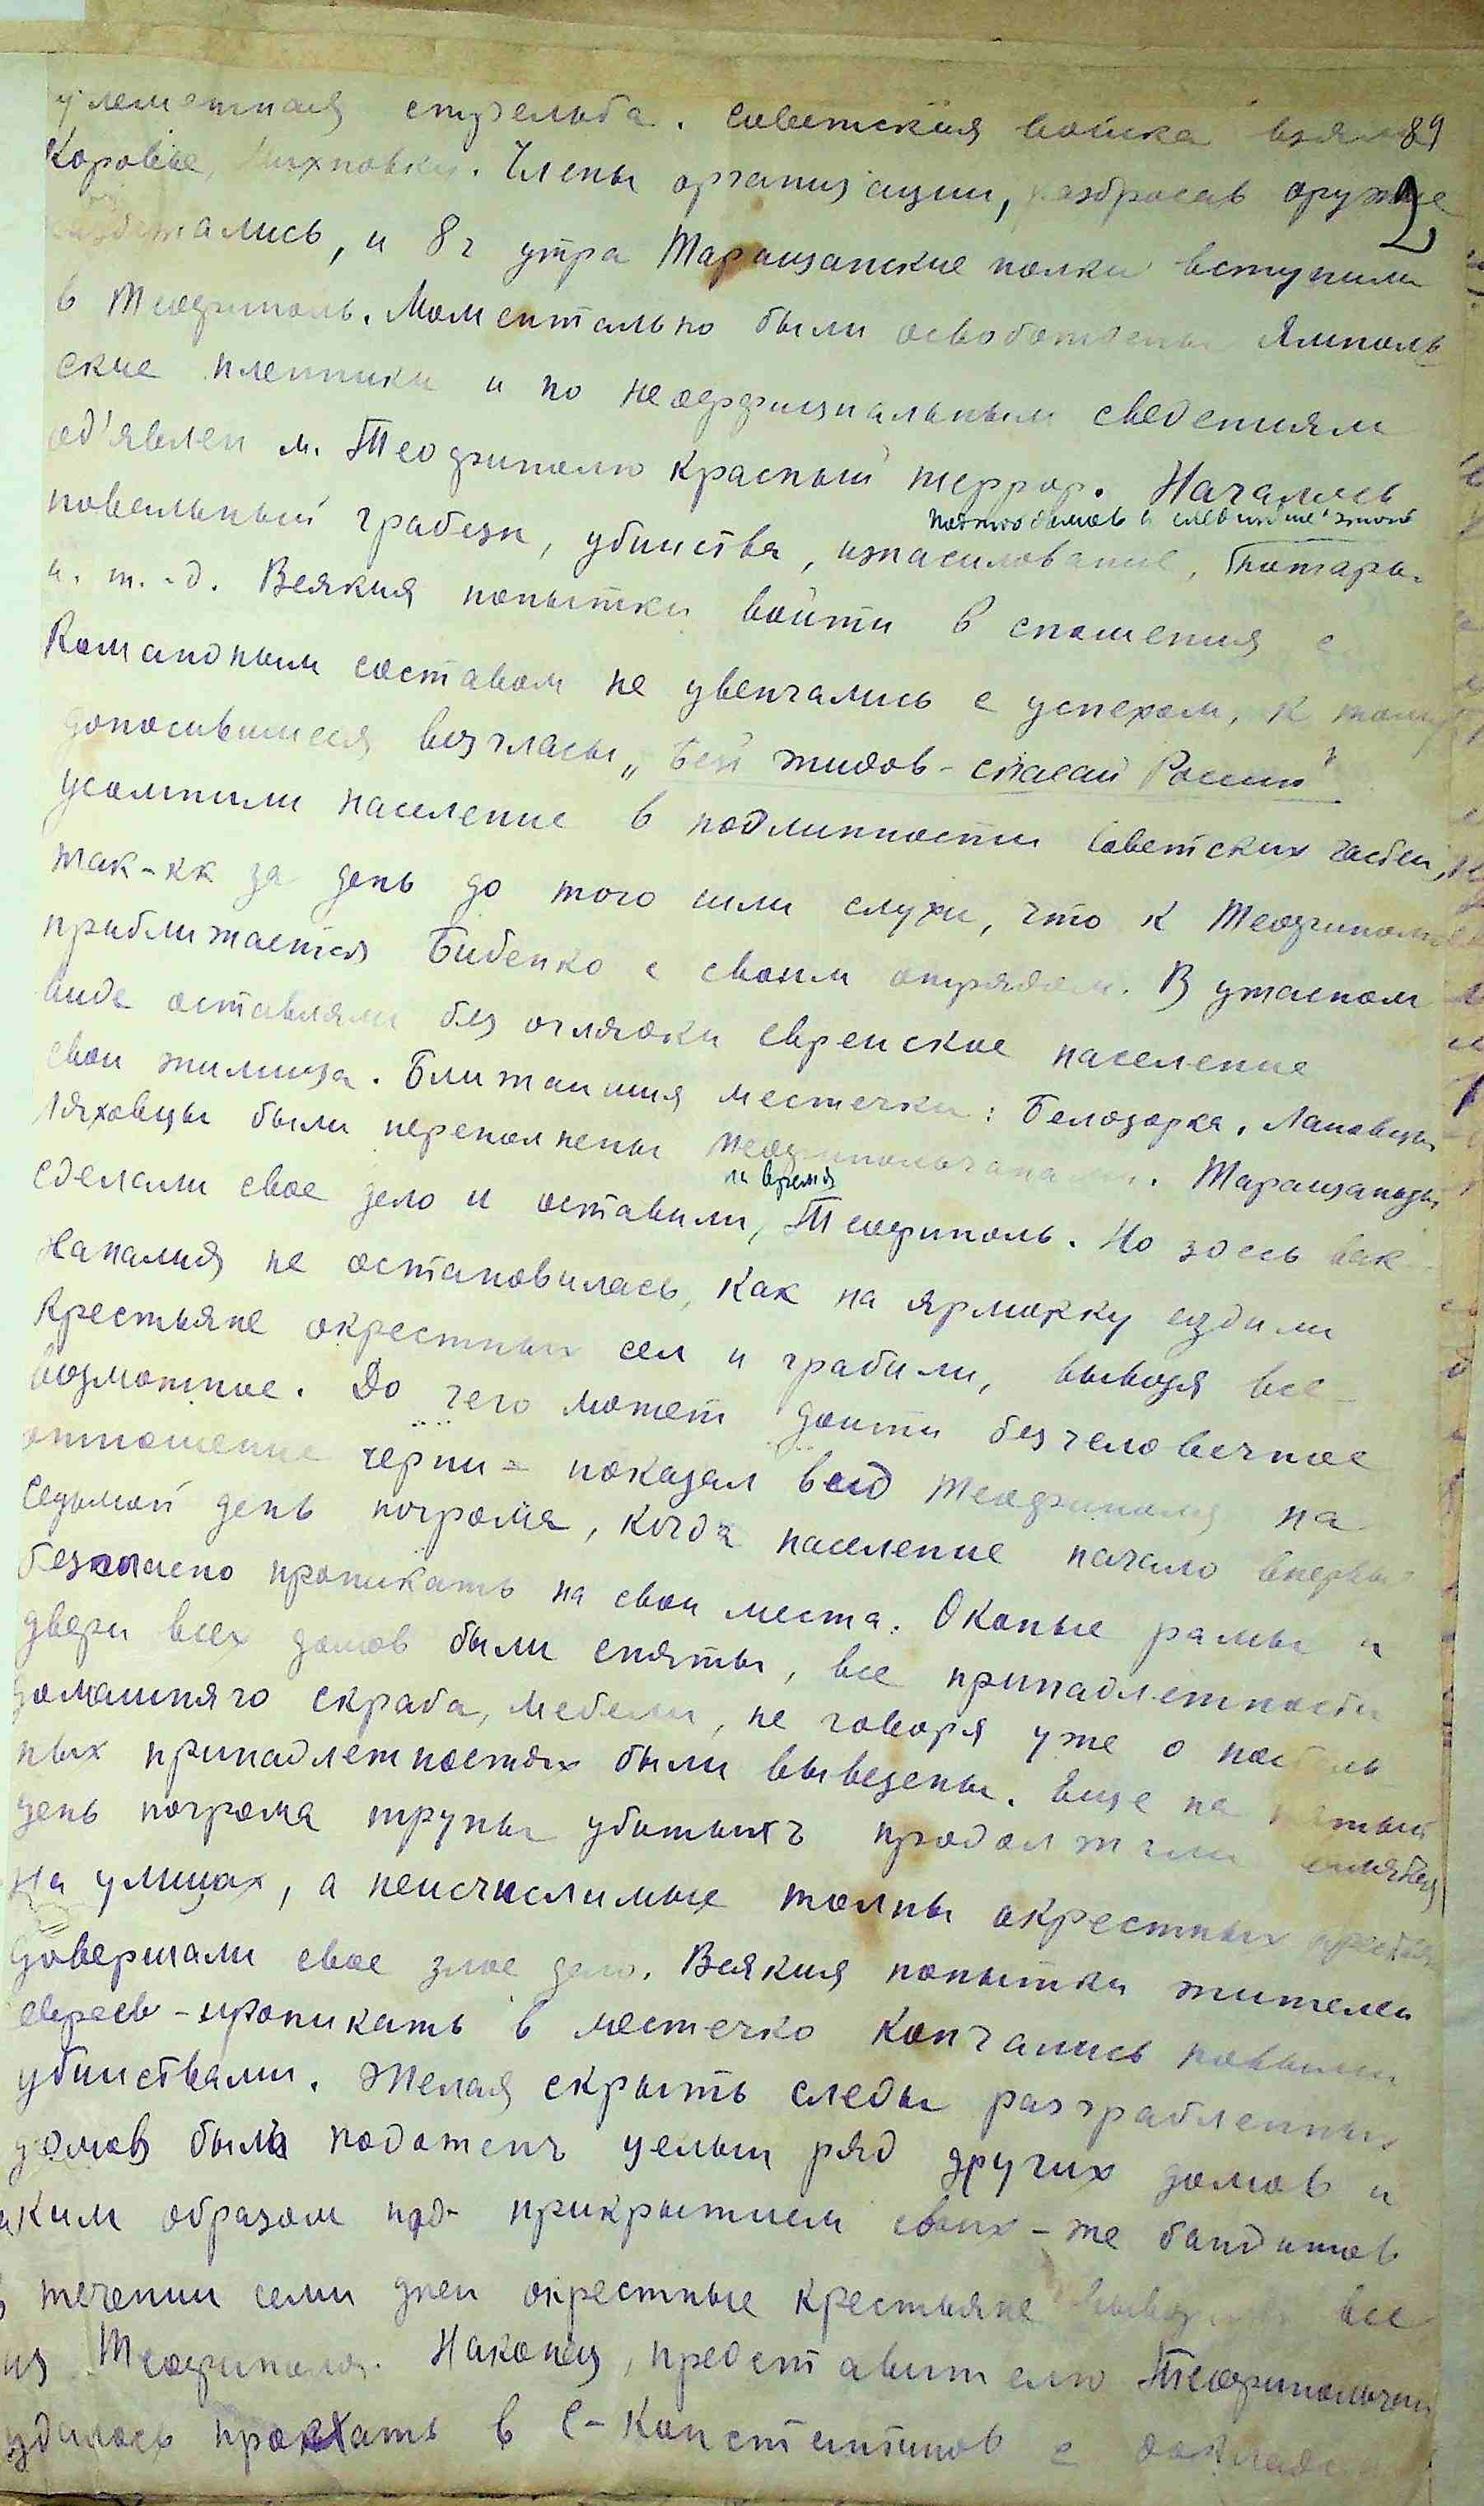 улеметная стрельба. Советския войска взяли 89
Коровье, Михновки. Члены организации, разбросав оружие 2
разбежались, и 8 ч утра Таращанские полки вступили
в Теофиполь. Моментально были освобождены Ямполь
ские пленники и по неоффициальным сведениям
об'явлен м. Теофиполю Красный террор. Начались
повальный грабежи, убийства, изнасилование, пожары
поджог домов и
и. т. д. Всякия попытки войти в сношения с
Командным составом не увенчались с успехом, к тому
доносившиеся возгласы „Бей жидов - спасай Россию"
усомнили население в подлинности Советских частей,
так-кк за день до того шли слухи, что к Теофиполю
приближается Бибенко с своим отрядом. В ужасном
виде оставляли без оглядки еврейское население
свои жилища. Ближайшия местечки: Белозорка, Лановцы
Ляховцы были переполнены Теофипольчанами. Таращанцы
сделали свое дело и оставили, Теофиполь. Но здесь вак
на время
ханалия не остановилась, Как на ярмарку ездили
Крестьяне окрестных сел и грабили, вывозя все
возможное. До чего может дойти безчеловечное
отношение черни - показал вид Теофиполя на
седьмой день погрома, когда население начало впервые
безопасно проникать на свои места. Оконые рамы и
двери всех домов были сняты, все принадлежности
домашняго скраба, мебели, не говоря уже о постель
ных принадлежностях были вывезены. Еще на пятый
день погрома трупы убитыхъ продолжали валяться
на улицах, а неисчислимые толпы окрестных крестьян
довершали свое злое дело. Всякия попытки жителей
евреев - проникать в местечко кончались новыми
убийствами. Желая скрыть следы разграбленных
домов былъ подожен целый ряд других домов и
аким образом под прикрытием своих-же бандитов
в течении семи дней окрестные крестьяне вывозили все
из Теофиполя. Наконец, представителю Теофипольчан
удалось проехать в С-Константинов с докладом